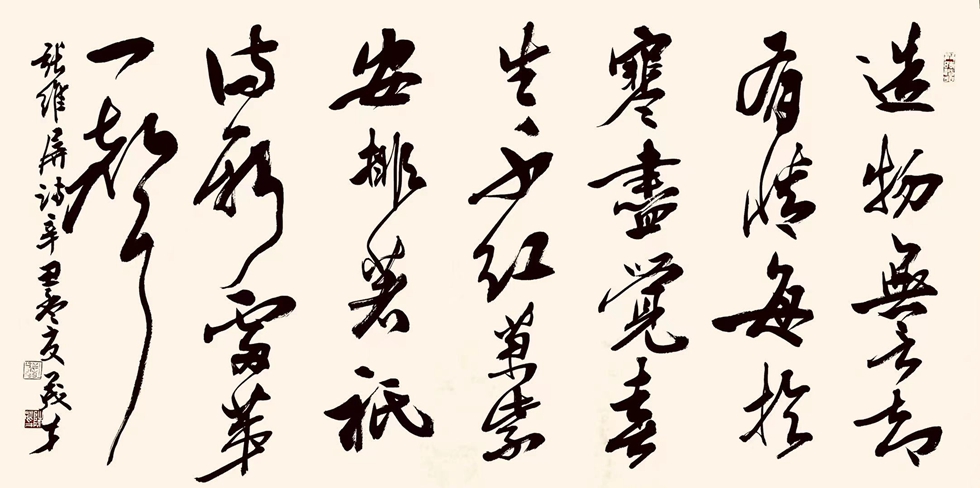 造物無言却
有情每於
寒盡覺春
生千红萬紫
安排著祇
待新雷第
一聲
張維屏詩辛丑孟夏